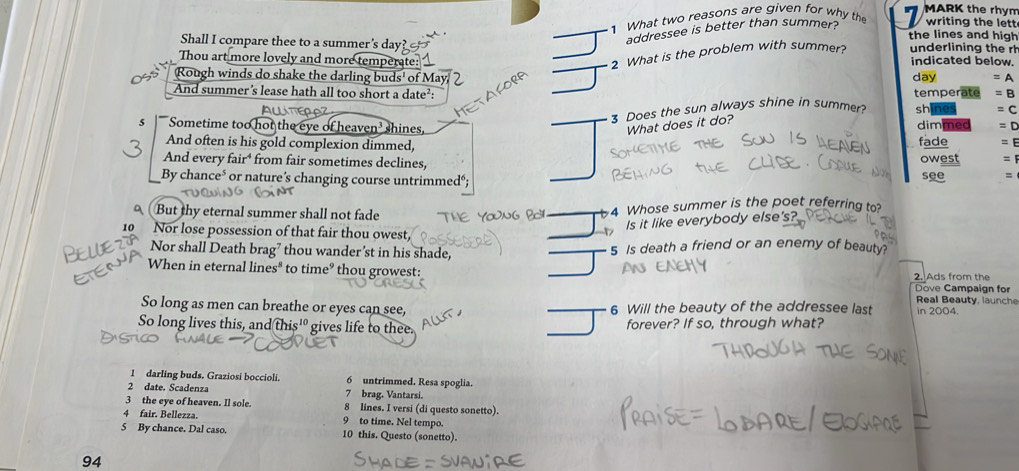 Shall I compare thee to a summer's day?
Thou art more lovely and more temperate: 1
OSSIM.
Rough winds do shake the darling buds¹ of May, 2
And summer's lease hath all too short a date²:
METAFORA
5 Sometime too hot the eye of heaven³ shines,
3 And often is his gold complexion dimmed,
And every fair⁴ from fair sometimes declines,
By chance⁵ or nature's changing course untrimmed⁶;
TURNING POINT
But thy eternal summer shall not fade
THE YOUNG BOY
10 Nor lose possession of that fair thou owest,
(POSSEDERE)
BELLEZZA ETERNA
Nor shall Death brag⁷ thou wander'st in his shade,
When in eternal lines⁸ to time⁹ thou growest:
TU CRESCI
So long as men can breathe or eyes can see,
So long lives this, and this¹⁰ gives life to thee.
ALLIT.
DISTICO FINALE → COUPLET
1 darling buds. Graziosi boccioli.
2 date. Scadenza
3 the eye of heaven. Il sole.
4 fair. Bellezza.
5 By chance. Dal caso.
6 untrimmed. Resa spoglia.
7 brag. Vantarsi.
8 lines. I versi (di questo sonetto).
9 to time. Nel tempo.
10 this. Questo (sonetto).
SHADE = SVANIRE
94
1 What two reasons are given for why the
addressee is better than summer?
2 What is the problem with summer?
3 Does the sun always shine in summer?
What does it do?
SOMETIME THE SUN IS
THE
4 Whose summer is the poet referring to?
Is it like everybody else's?
PERCHÉ IL
5 Is death a friend or an enemy of beauty?
AN ENEMY
6 Will the beauty of the addressee last
forever? If so, through what?
THROUGH THE SONE
PRAISE = LODARE/ELOGIARE
7 MARK the rhym
writing the lett
the lines and high
underlining the rh
indicated below.
day = A
temperate = B
shines = C
dimmed = D
fade = E
owest = F
see =
2. Ads from the
Dove Campaign for
Real Beauty, launche
in 2004.